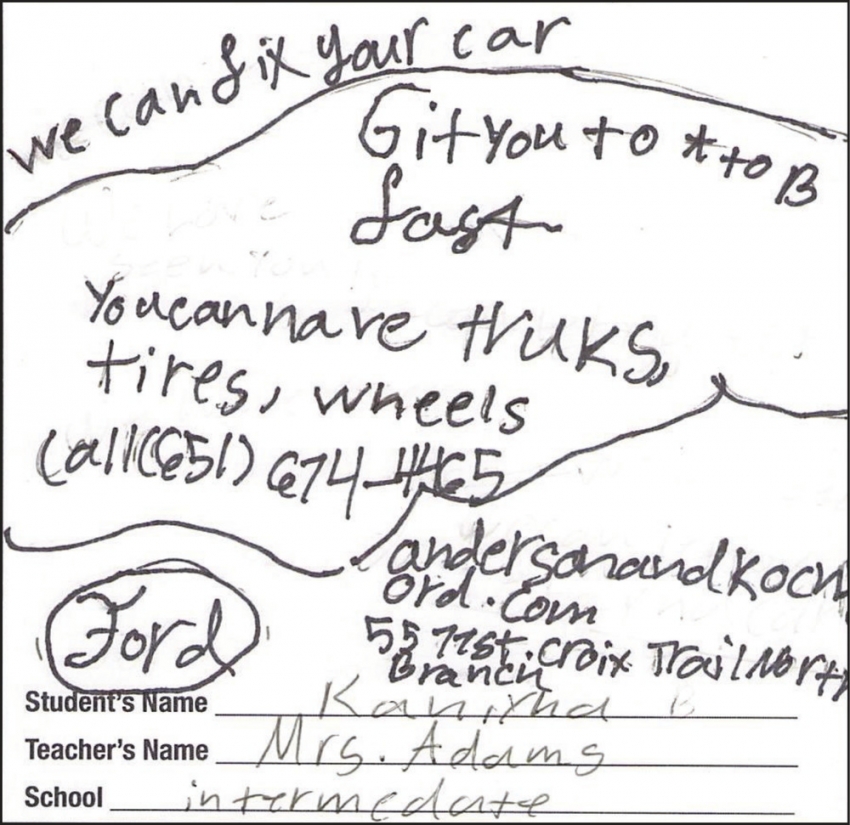 we can fix your car
Git you to * to B
fast
You can have truks,
tires, wheels
Call (651) 674-4465
andersonandkoch
ord.com
5577 st. croix Trail North
Branch
Ford
Student's Name
Teacher's Name Mrs. Adams
School intermedate